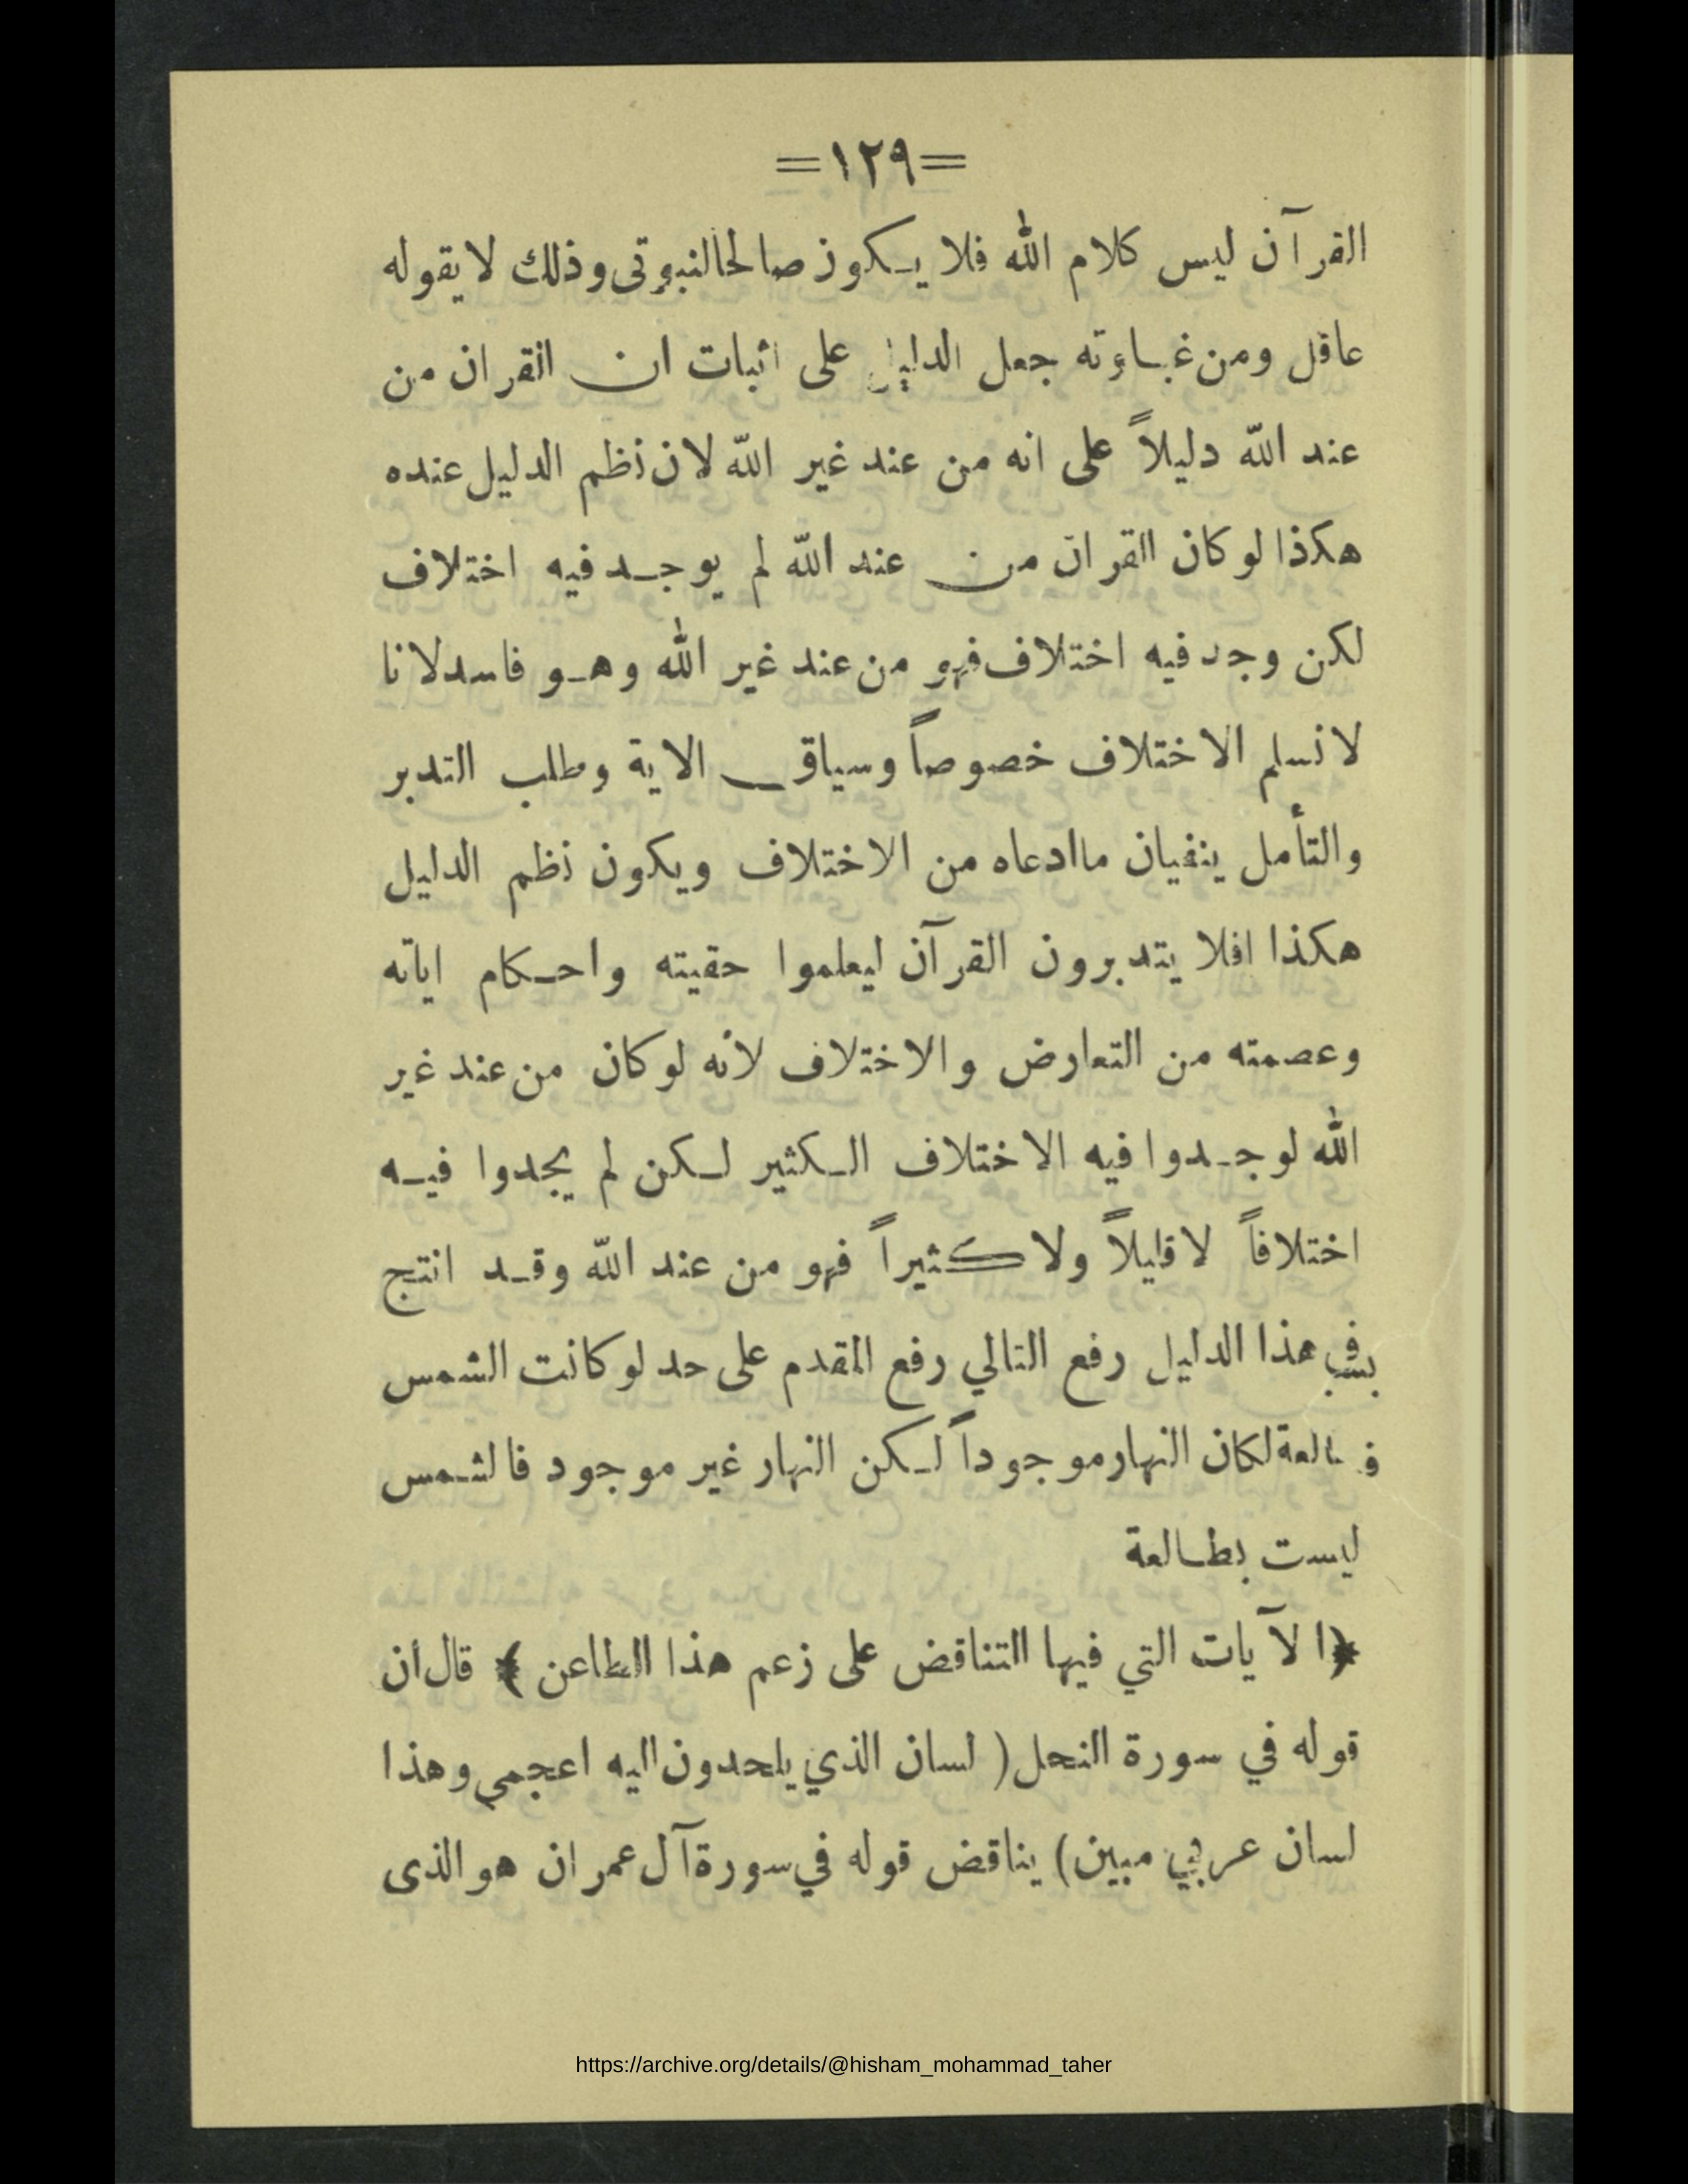 =١٢٩=
القرآن ليس كلام الله فلا يكون صالحالنبوتى وذلك لا يقوله
عاقل ومن غباوته جعل الدليل على اثبات ان القران من
عند الله دليلاً على انه من عند غير الله لان نظم الدليل عنده
هكذا لو كان القران من عند الله لم يوجد فيه اختلاف
لكن وجد فيه اختلاف فهو من عند غير الله وهو فاسد لانا
لا نسلم الاختلاف خصوصاً وسياق الاية وطلب التدبر
والتأمل ينفيان ماادعاه من الاختلاف ويكون نظم الدليل
هكذا افلا يتدبرون القرآن ليعلموا حقيته واحكام اياته
وعصمته من التعارض والاختلاف لأنه لو كان من عند غير
الله لوجدوا فيه الاختلاف الكثير لكن لم يجدوا فيه
اختلافاً لا قليلاً ولا كثيراً فهو من عند الله وقد انتج
هذا الدليل رفع التالي رفع المقدم على حد لو كانت الشمس
لكان النهار موجوداً لكن النهار غير موجود فالشمس
ليست بطالعة
﴿الآيات التي فيها التناقض على زعم هذا الطاعن﴾ قال أن
قوله في سورة النحل ( لسان الذي يلحدون اليه اعجمي وهذا
لسان عربي مبين) يناقض قوله في سورة آل عمران هو الذى
https://archive.org/details/@hisham_mohammad_taher